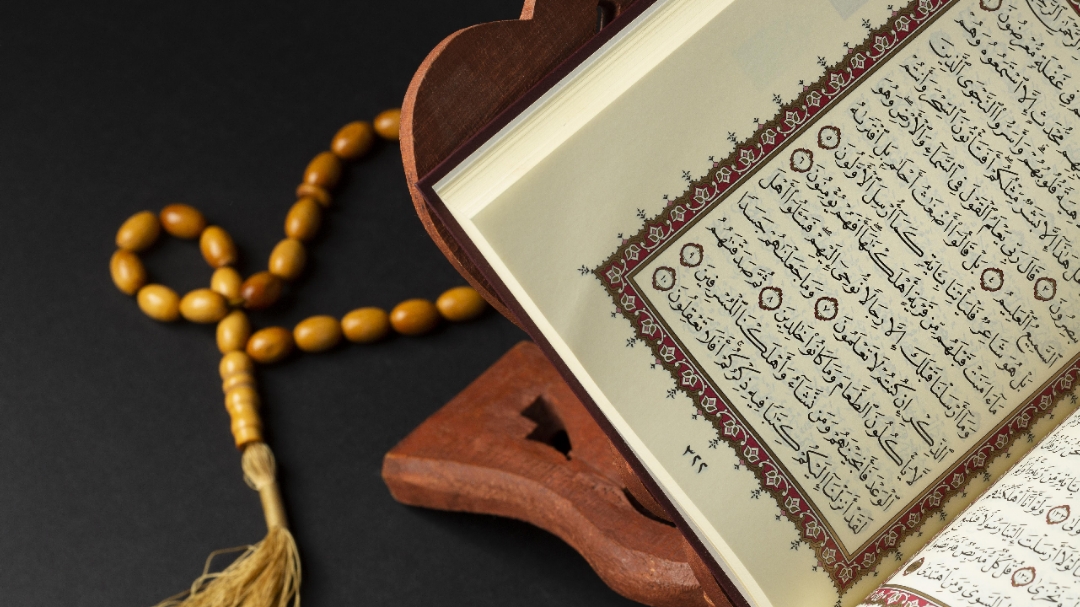 فِى غَفْلَةٍ مُّعْرِضُونَ
مُّحْدَثٍ إِلَّا ٱسْتَمَعُوهُ وَهُمْ
قُلُوبُهُمْ وَأَسَرُّوا۟ ٱلنَّجْوَى ٱلَّذِينَ
هَلْ هَٰذَآ إِلَّا بَشَرٌ مِّثْلُكُمْ أَفَتَأْتُونَ ٱلسِّحْرَ وَأَنتُمْ
تُبْصِرُونَ ٣ قَالَ رَبِّى يَعْلَمُ ٱلْقَوْلَ فِى ٱلسَّمَآءِ وَٱلْأَرْضِ وَهُوَ
ٱلسَّمِيعُ ٱلْعَلِيمُ ٤ بَلْ قَالُوٓا۟ أَضْغَٰثُ أَحْلَٰمٍ بَلِ ٱفْتَرَىٰهُ
بَلْ هُوَ شَاعِرٌ فَلْيَأْتِنَا بِـَٔايَةٍ كَمَآ أُرْسِلَ ٱلْأَوَّلُونَ ٥
مَآ ءَامَنَتْ قَبْلَهُم مِّن قَرْيَةٍ أَهْلَكْنَٰهَآ أَفَهُمْ يُؤْمِنُونَ ٦
وَمَآ أَرْسَلْنَا قَبْلَكَ إِلَّا رِجَالًا نُّوحِىٓ إِلَيْهِمْ فَسْـَٔلُوٓا۟ أَهْلَ
ٱلذِّكْرِ إِن كُنتُمْ لَا تَعْلَمُونَ ٧ وَمَا جَعَلْنَٰهُمْ جَسَدًا
لَّا يَأْكُلُونَ ٱلطَّعَامَ وَمَا كَانُوا۟ خَٰلِدِينَ ٨ ثُمَّ صَدَقْنَٰهُمُ
ٱلْوَعْدَ فَأَنجَيْنَٰهُمْ وَمَن نَّشَآءُ وَأَهْلَكْنَا ٱلْمُسْرِفِينَ ٩
لَقَدْ أَنزَلْنَآ إِلَيْكُمْ كِتَٰبًا فِيهِ ذِكْرُكُمْ أَفَلَا تَعْقِلُونَ ١٠
٣٢٢